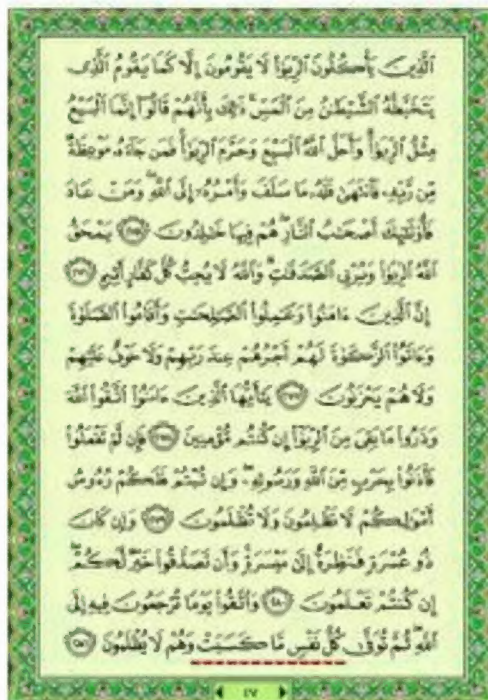 ٱلَّذِينَ يَأْكُلُونَ ٱلرِّبَوٰا۟ لَا يَقُومُونَ إِلَّا كَمَا يَقُومُ ٱلَّذِى
يَتَخَبَّطُهُ ٱلشَّيْطَٰنُ مِنَ ٱلْمَسِّ ۚ ذَٰلِكَ بِأَنَّهُمْ قَالُوٓا۟ إِنَّمَا ٱلْبَيْعُ
مِثْلُ ٱلرِّبَوٰا۟ ۗ وَأَحَلَّ ٱللَّهُ ٱلْبَيْعَ وَحَرَّمَ ٱلرِّبَوٰا۟ ۚ فَمَن جَآءَهُۥ مَوْعِظَةٌ
مِّن رَّبِّهِۦ فَٱنتَهَىٰ فَلَهُۥ مَا سَلَفَ وَأَمْرُهُۥٓ إِلَى ٱللَّهِ ۖ وَمَنْ عَادَ
فَأُو۟لَٰٓئِكَ أَصْحَٰبُ ٱلنَّارِ ۖ هُمْ فِيهَا خَٰلِدُونَ ﴿٢٧٥﴾ يَمْحَقُ
ٱللَّهُ ٱلرِّبَوٰا۟ وَيُرْبِى ٱلصَّدَقَٰتِ ۗ وَٱللَّهُ لَا يُحِبُّ كُلَّ كَفَّارٍ أَثِيمٍ ﴿٢٧٦﴾
إِنَّ ٱلَّذِينَ ءَامَنُوا۟ وَعَمِلُوا۟ ٱلصَّٰلِحَٰتِ وَأَقَامُوا۟ ٱلصَّلَوٰةَ
وَءَاتَوُا۟ ٱلزَّكَوٰةَ لَهُمْ أَجْرُهُمْ عِندَ رَبِّهِمْ وَلَا خَوْفٌ عَلَيْهِمْ
وَلَا هُمْ يَحْزَنُونَ ﴿٢٧٧﴾ يَٰٓأَيُّهَا ٱلَّذِينَ ءَامَنُوا۟ ٱتَّقُوا۟ ٱللَّهَ
وَذَرُوا۟ مَا بَقِىَ مِنَ ٱلرِّبَوٰٓا۟ إِن كُنتُم مُّؤْمِنِينَ ﴿٢٧٨﴾ فَإِن لَّمْ تَفْعَلُوا۟
فَأْذَنُوا۟ بِحَرْبٍ مِّنَ ٱللَّهِ وَرَسُولِهِۦ ۖ وَإِن تُبْتُمْ فَلَكُمْ رُءُوسُ
أَمْوَٰلِكُمْ لَا تَظْلِمُونَ وَلَا تُظْلَمُونَ ﴿٢٧٩﴾ وَإِن كَانَ
ذُو عُسْرَةٍ فَنَظِرَةٌ إِلَىٰ مَيْسَرَةٍ ۚ وَأَن تَصَدَّقُوا۟ خَيْرٌ لَّكُمْ ۖ
إِن كُنتُمْ تَعْلَمُونَ ﴿٢٨٠﴾ وَٱتَّقُوا۟ يَوْمًا تُرْجَعُونَ فِيهِ إِلَى
ٱللَّهِ ۖ ثُمَّ تُوَفَّىٰ كُلُّ نَفْسٍ مَّا كَسَبَتْ وَهُمْ لَا يُظْلَمُونَ ﴿٢٨١﴾
٤٧